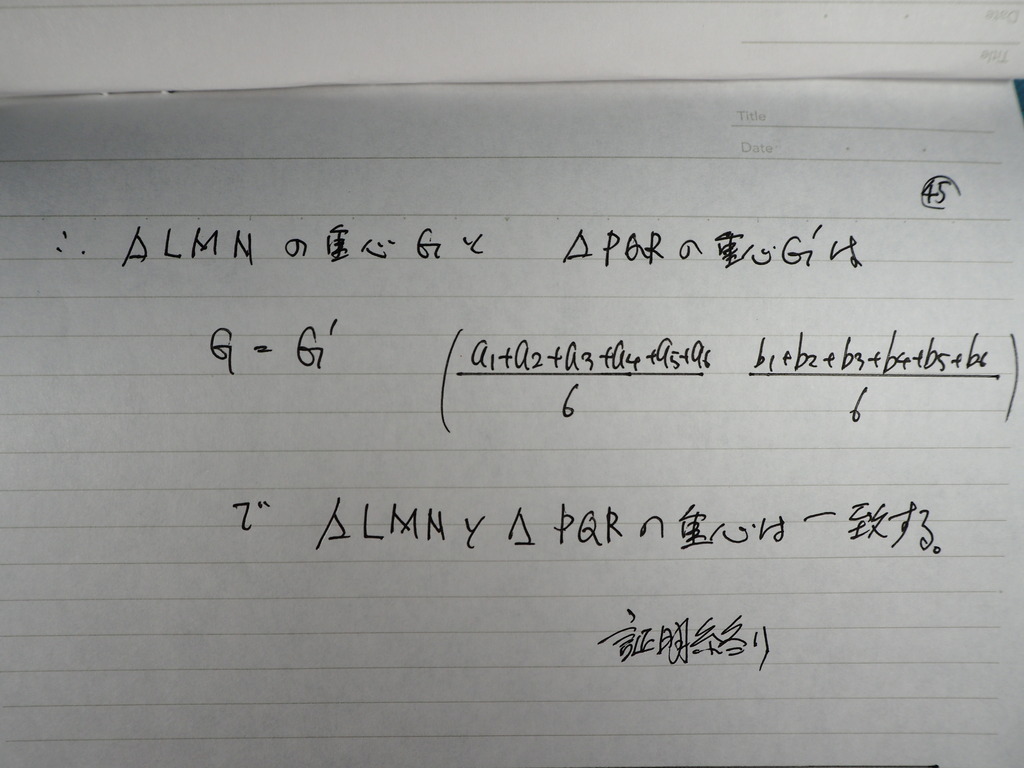 Date
Title
Title
Date
㊺
∴ △LMNの重心Gと △PQRの重心G'は
G = G' (a1+a2+a3+a4+a5+a6/6 b1+b2+b3+b4+b5+b6/6)
で △LMNと△PQRの重心は一致する。
証明終り